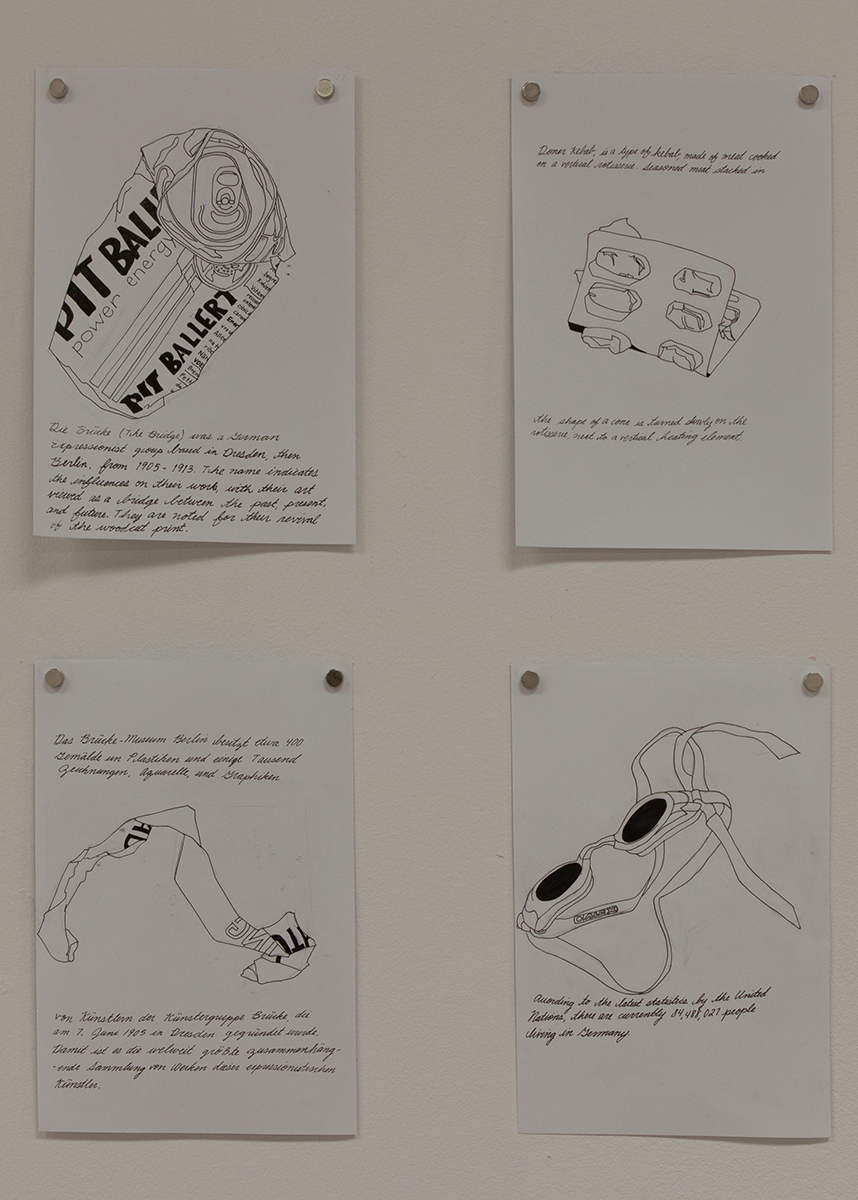 PIT BALL
power energy
PIT BALLERT
Die Brücke (The Bridge) was a German
Expressionist group based in Dresden, then
Berlin, from 1905 - 1913. The name indicates
the influences on their work, with their art
viewed as a bridge between the past, present,
and future. They are noted for their revival
of the woodcut print.
Doner Kebab, is a type of kebab, made of meat cooked
on a vertical rotisserie. Seasoned meat stacked in
the shape of a cone is turned slowly on the
rotisserie, next to a vertical heating element.
Das Brücke-Museum Berlin besitzt etwa 400
Gemälde un Plastiken und einige Tausend
Zeichnungen, Aquarelle, und Graphiken
von Künstlern der Künstergruppe Brücke, die
am 7. Juni 1905 in Dresden gegründet wurde.
Damit ist es die weltweit größte zusammenhäng-
-ende Sammlung von Werken dieser expressionistischen
Künstler.
According to the latest statistcis by the United
Nations, there are currently 84,488,027 people
living in Germany